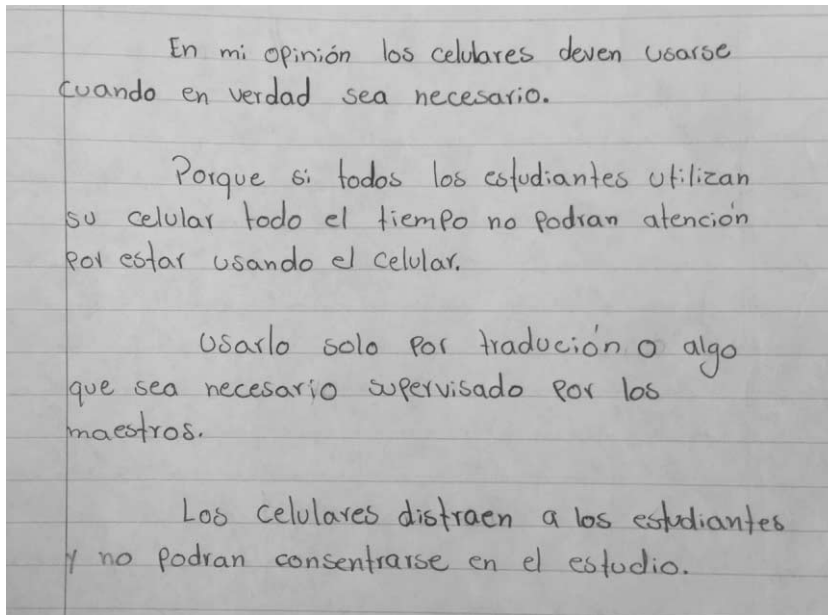 En mi opinión los celulares deven usarse
cuando en verdad sea necesario.
Porque si todos los estudiantes utilizan
su celular todo el tiempo no podran atención
por estar usando el celular.
Usarlo solo por tradución o algo
que sea necesario supervisado por los
maestros.
Los celulares distraen a los estudiantes
y no podran consentrarse en el estudio.